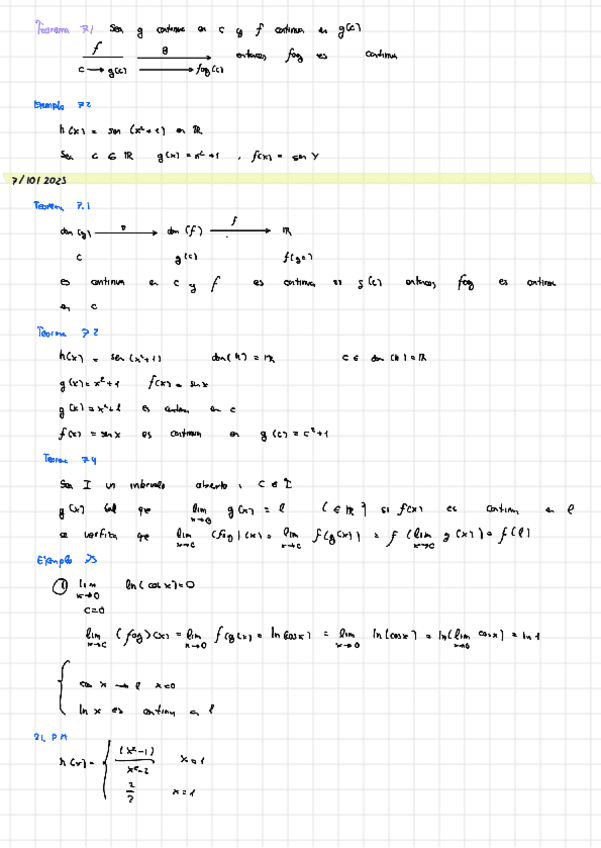 Teorema 7.1 Sea g continua en c y f continua en g(c)
f g entonces fog es continua
c → g(c) → fog(c)
Ejemplo 7.2
h(x) = sen (x²+1) en ℝ
Sea c ∈ ℝ g(x) = x²+1 , f(x) = sen y
7/10/2025
Teorema 7.1
dom(g) → dom(f) f → ℝ
c g(c) f(g(c))
es continua en c y f es continua en g(c) entonces fog es continua
en c
Teorema 7.2
h(x) = sen(x²+1) dom(h) = ℝ c ∈ dom(h) = ℝ
g(x) = x²+1 f(x) = sin x
g(x) = x²+1 es continua en c
f(x) = sin x es continua en g(c) = c²+1
Teorema 7.4
Sea I un intervalo abierto, c ∈ I
g(x) tal que lim x→0 g(x) = l (∈ ℝ) si f(x) es continua en l
se verifica que lim x→c (fog)(x) = lim x→c f(g(x)) = f (lim x→c g(x)) = f(l)
Ejemplo 7.5
① lim x→0 ln(cos x) = 0
c=0
lim x→c (fog)(x) = lim x→0 f(g(x)) = ln(cos x) = lim x→0 ln(cos x) = ln(lim x→0 cos x) = ln 1
cos x → l x=0
ln x es continua en l
h(x) = { (x²-1)